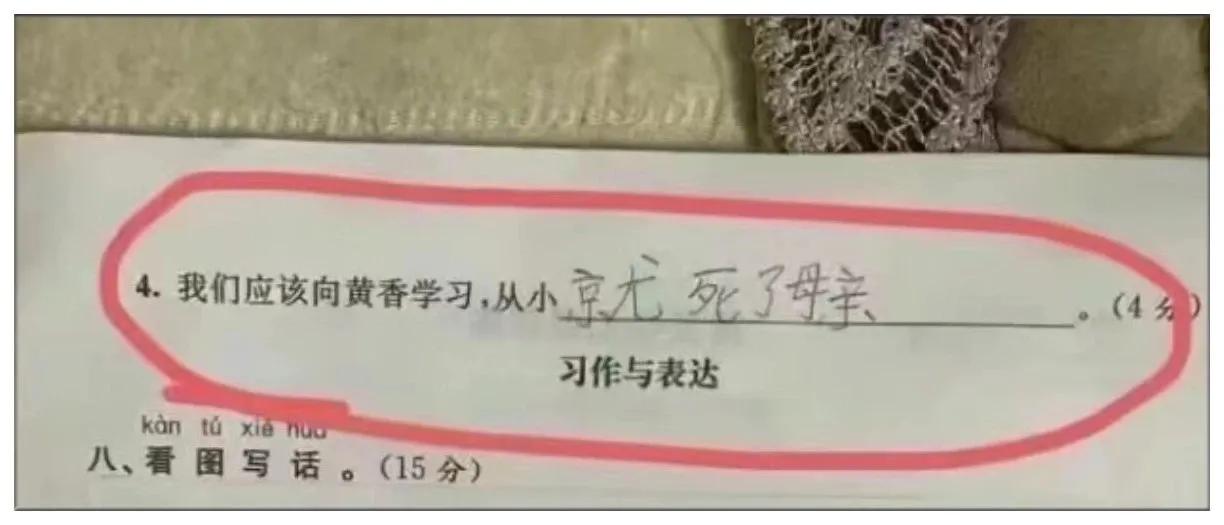 4. 我们应该向黄香学习,从小京尤死了母亲。(4分)
习作与表达
kàn tú xiě huà
八、看图写话。(15分)